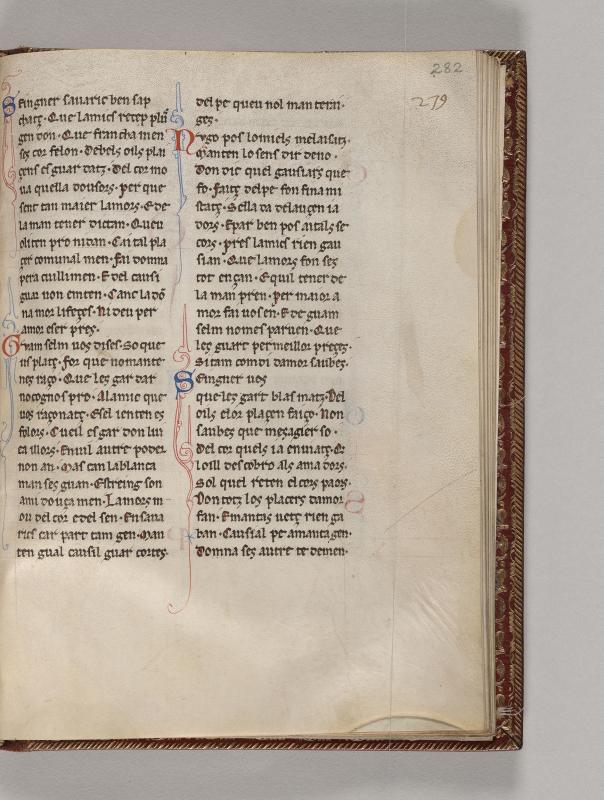 282
279
Seingner sauaric ben sap
chatz. Que lamics recep plu
gen don. Que francha men
ses cor felon. Debels oils plai
zens esguardatz. Del cor mo
ua quella dousors. Per que
sent tan maier lamors. E de
la man tener dic tan. Queu
oli ten pro ni dan. Cai tal pla
zer comunal men. Fai domna
per a cuillimen. E del causi
guar non enten. Can cla do
na mor li fezes. Ni deu per
amor eser pres.
Gnam selm uos dises. So que
us platz. For que no mante
nez razo. Que lez gar dar
no cognos pro. A lamic que
uos razonatz. E sel i enten es
folors. Cueil es gar don lui
ca illors. E nuil autre poder
non an. Mas can la blanca
man ses guan. Estreing son
ami douza men. Lamors m
ou del cor e del sen. En saua
rics car part tam gen. Man
ten gual causil guar cortes.
del pe queu nol man tenri
ges.
Nugo pos lo miels me laisatz.
Manten lo sens dir de no.
Don dic quel gausiars que
fo. Faitz del pe fon fin a mi
statz. Sella da delauzen ia
dors. E par ben pos aitals se
cors. Pres lamics rien gau
sian. Que lamors fon ses
tot enzan. E quil tener de
la man pren. Per maior a
mor fai uosen. E de guam
selm no mes paruen. Que
lez guart per meillor prezes.
Si tam com di damor saubes.
Seingner uos
que lez gart blasmatz. Del
oils e lor plazen faizo. Non
saubes que mesagier so.
Del cor quels i a enuiatz. Cr
loill descobro als ama dors.
So quel reten el cors paors.
Don totz los placers damor
fan. E mantas uetz rien ga
ban. Causial pe a manta gen.
Domna ses autre te demen.